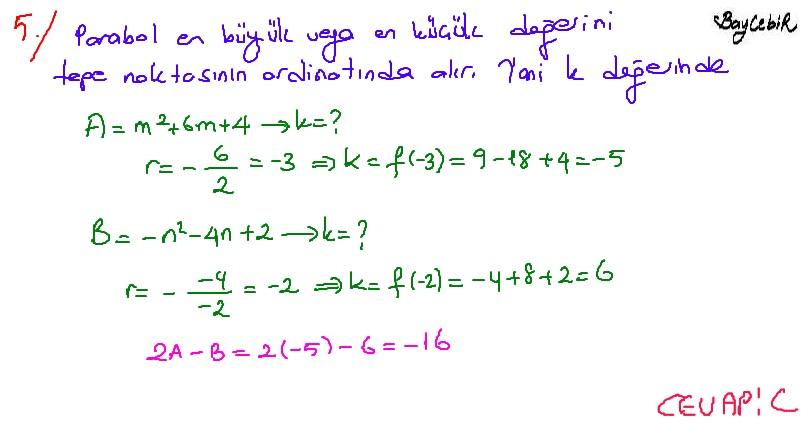 BayCebiR
5./ Parabol en büyük veya en küçük değerini
tepe noktasının ordinatında alır. Yani k değerinde
A = m²+6m+4 → k=?
r = - 6/2 = -3 ⇒ k = f(-3) = 9-18+4 = -5
B = -n²-4n+2 → k=?
r = - -4/-2 = -2 ⇒ k = f(-2) = -4+8+2 = 6
2A-B = 2(-5)-6 = -16
CEVAP: C